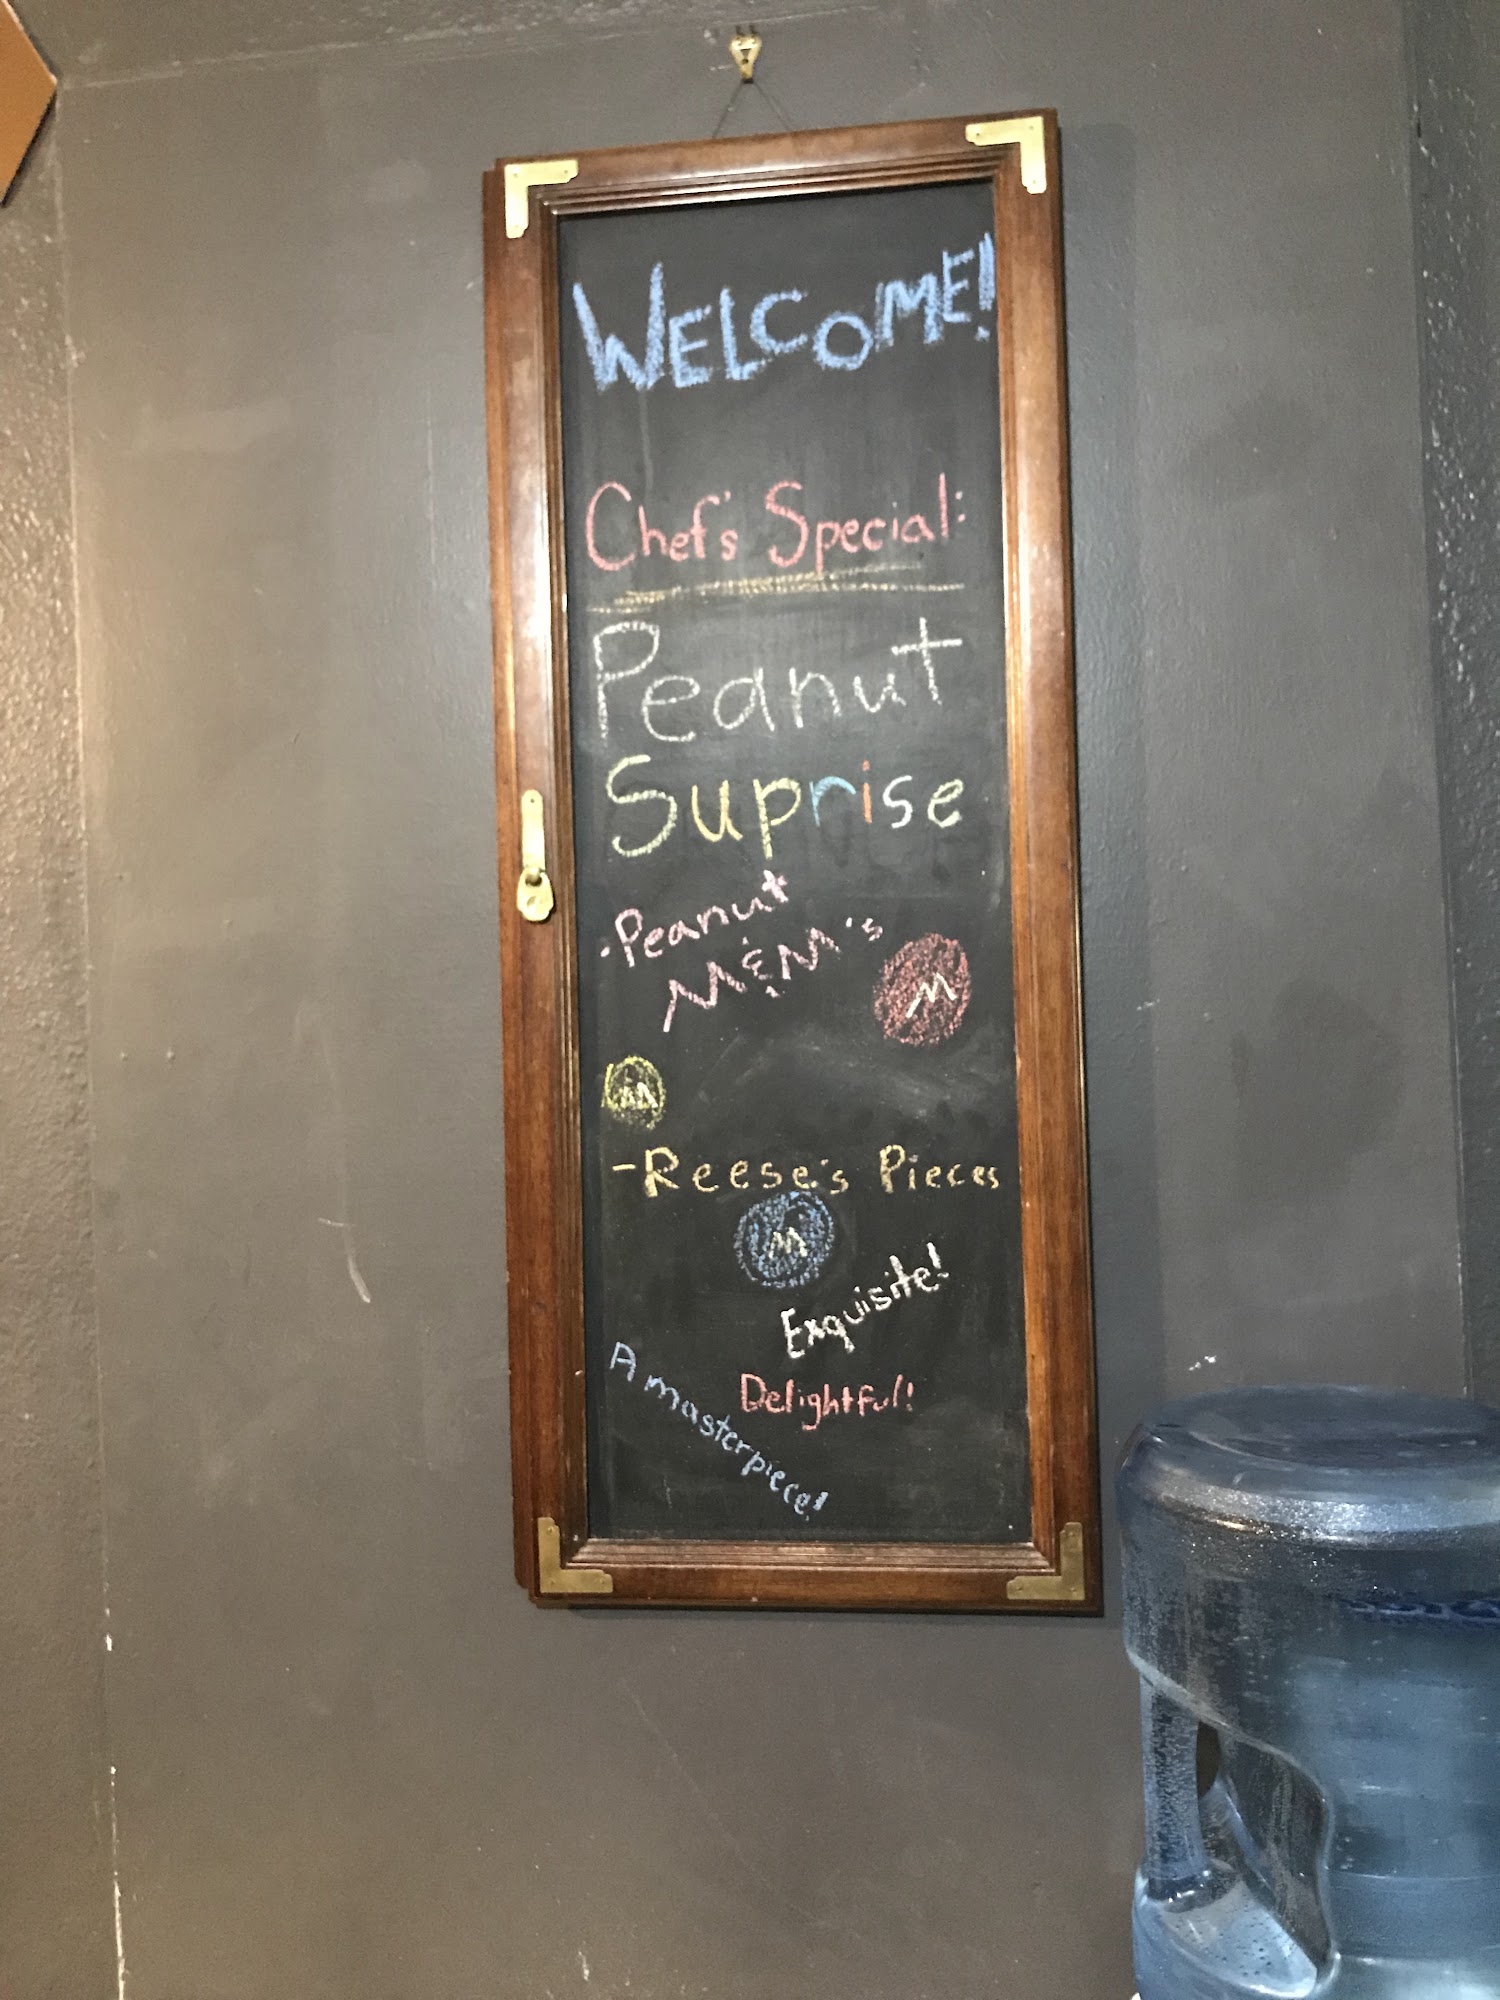 WELCOME!
Chef's Special:
Peanut
Suprise
·Peanut
M&M's
M
M
-Reese's Pieces
M
Exquisite!
Delightful!
A masterpiece!